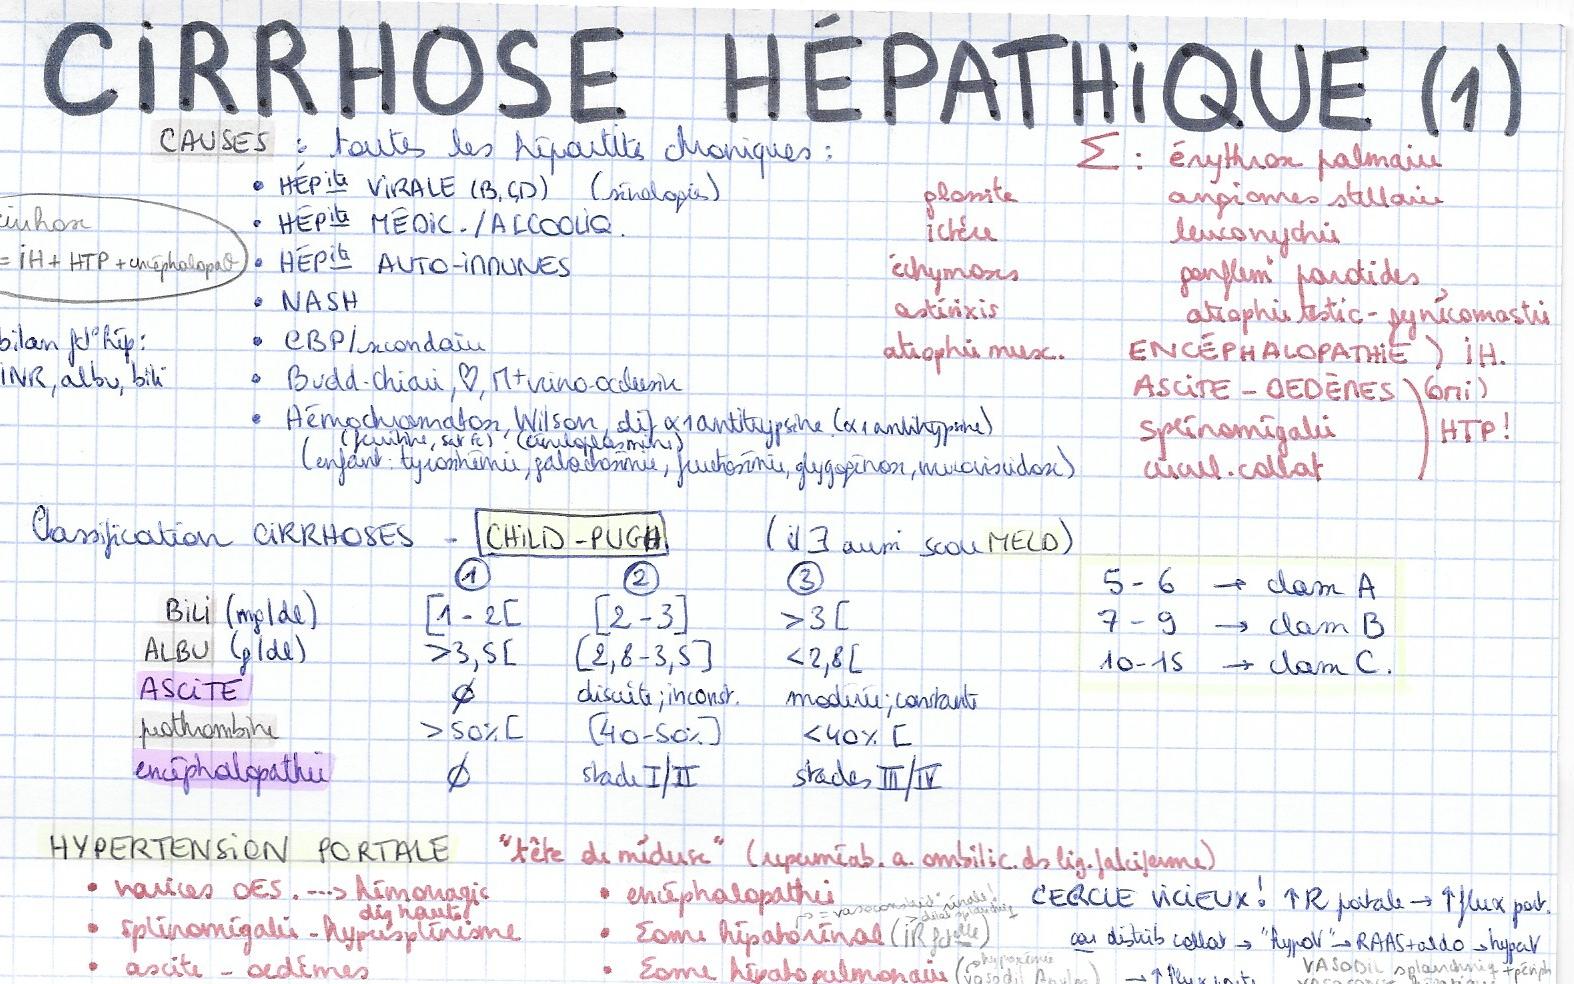 CIRRHOSE HÉPATHIQUE (1)
CAUSES : toutes les hépatites chroniques :
• HÉPite VIRALE (B,C,D) (sérologies)
• HÉPite MÉDIC./ALCOOLIQ.
• HÉPite AUTO-IMMUNES
• NASH
• CBP/secondaire
• Budd-Chiari, ♡, M+veino-occlusive
• Hémochromatose, Wilson, déf α1antitrypsine (α1antitrypsine)
(ferritine, sat fe) (céruloplasmine)
(enfant: tyrosinémie, galactosémie, fructosémie, glycogénose, mucoviscidose)
cirrhose
= iH + HTP + encéphalopat
bilan fct° hép:
INR, albu, bili
Σ : érythrose palmaire
glossite angiomes stellaire
ictère leuconychie
échymoses gonflemt parotides
astérixis atrophie testic - gynécomastie
atrophie musc. ENCÉPHALOPATHIE ) iH.
ASCITE - OEDÈMES (omi)
splénomégalie HTP!
circul. collat
Classification CIRRHOSES - CHILD-PUGH (il ∃ aussi score MELD)
① ② ③
BiLi (mg/dl) [1-2[ [2-3] >3[
ALBU (g/dl) >3,5[ [2,8-3,5] <2,8[
ASCITE ∅ discrète; inconst. modérée; constante
prothrombine >50%[ [40-50%] <40%[
encéphalopathie ∅ stade I/II stades III/IV
5-6 → classe A
7-9 → classe B
10-15 → classe C.
HYPERTENSION PORTALE "tête de méduse" (reperméab. a. ombilic. ds lig. falciforme)
• varices OES. ---> hémorragie
dig haute!
• splénomégalie - hypersplénisme
• ascite - oedèmes
• encéphalopathie
= vasoconstrict rénale!
• Σome hépatorénal (iR fctelle)
• Σome hépatopulmonaire (
hypoxémie
CERCLE VICIEUX! ↑R portale → ↑flux port.
car distrib collat → "hypoV" → RAAS+aldo → hyperV
→ ↑flux
VASODIL splanchniq + périph